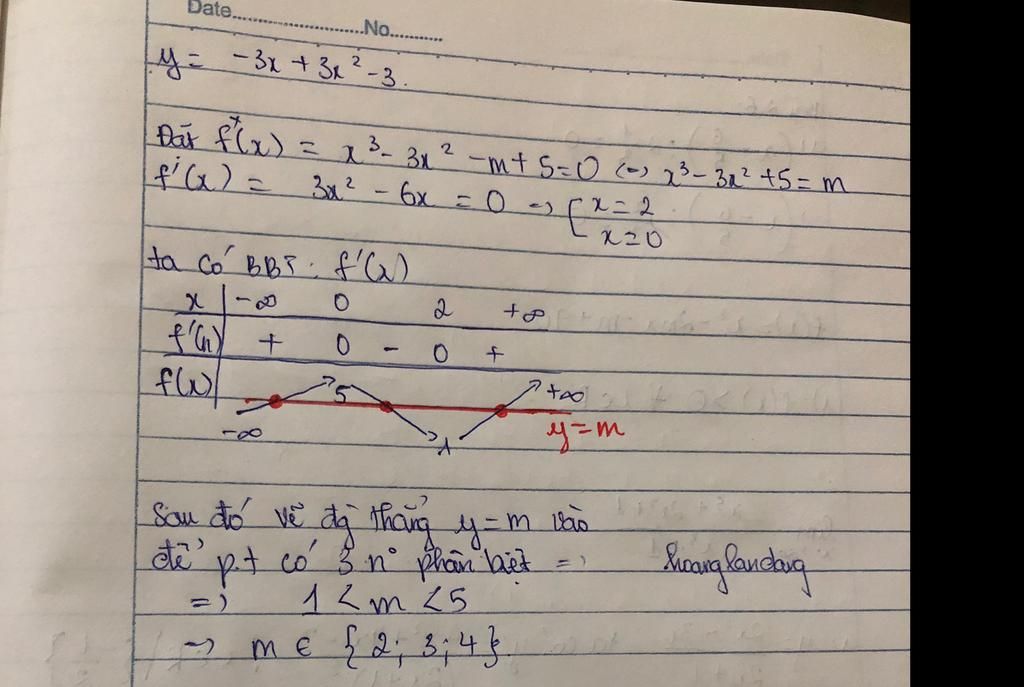 Date..............................No............
y = -3x + 3x² - 3.
Đặt f(x) = x³ - 3x² - m + 5 = 0 (=) x³ - 3x² + 5 = m
f'(x) = 3x² - 6x = 0 => [ x = 2
x = 0
ta có BBT: f'(x)
x | -∞ 0 2 +∞
f'(x) | + 0 - 0 +
f(x) | -∞ 5 1 +∞
y = m
Sau đó vẽ đg thẳng y = m vào
để p.t có 3 n⁰ phân biệt =>
hoanglandang
=> 1 < m < 5
-> m ∈ {2; 3; 4}